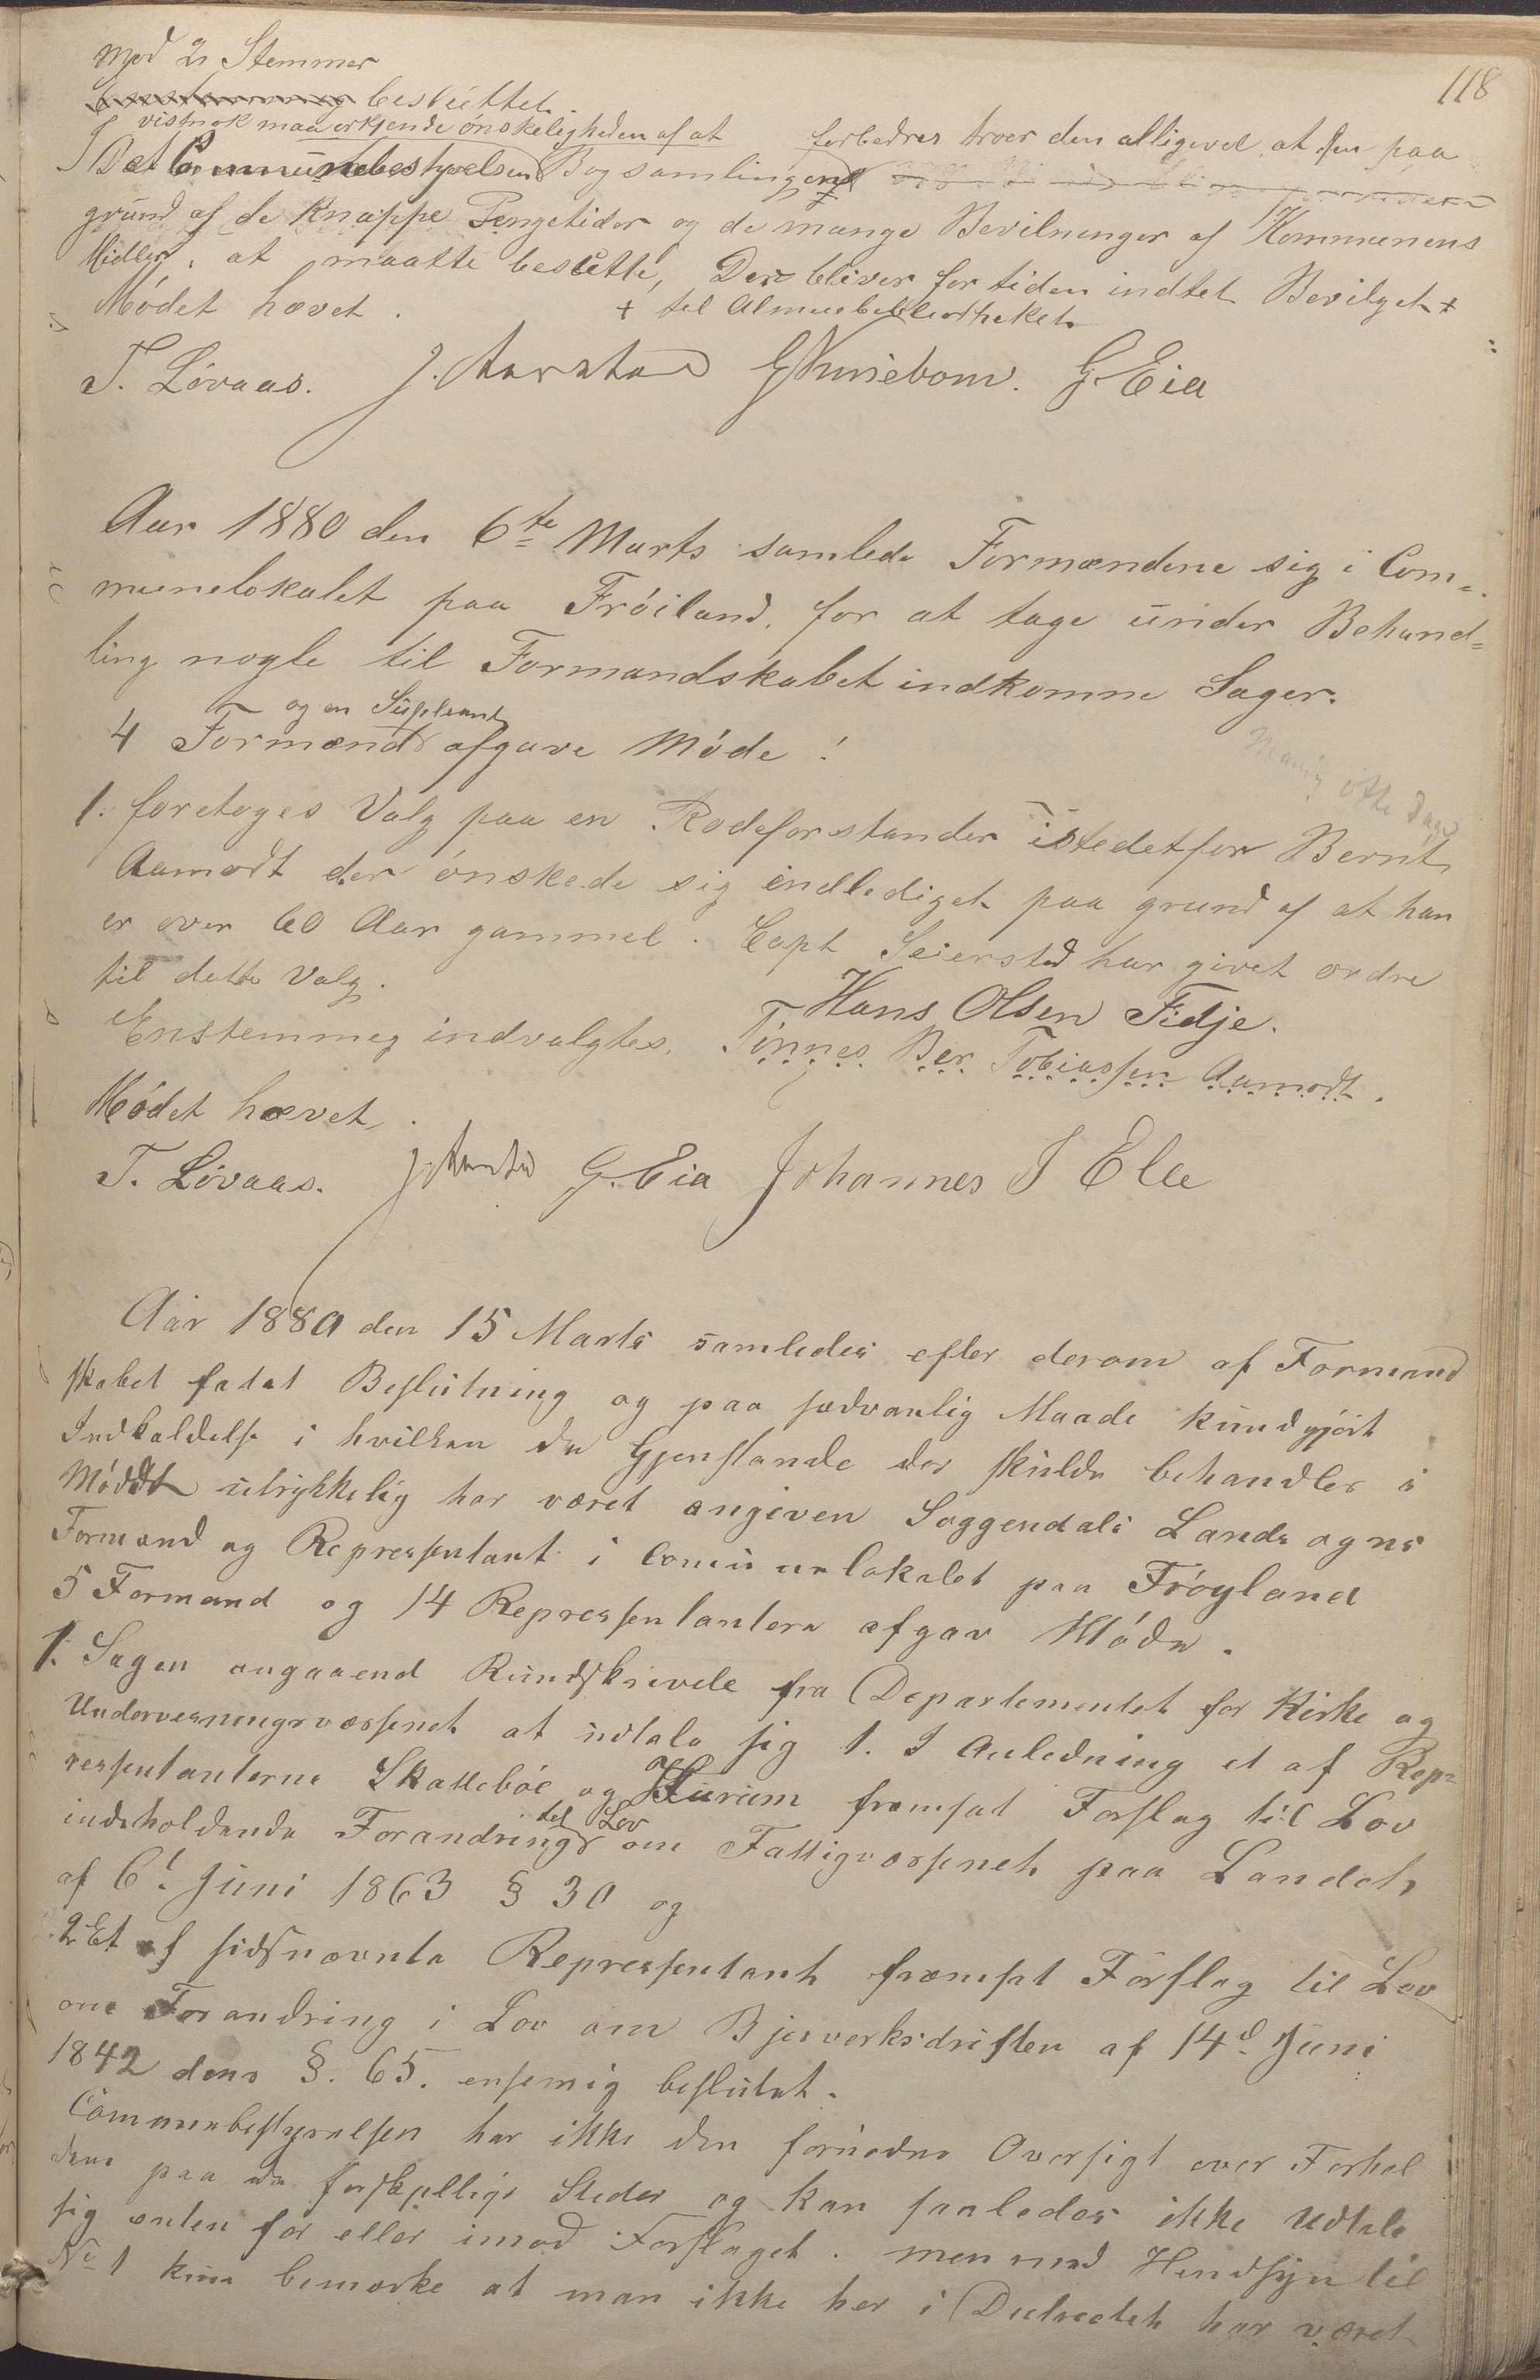 118
Med 2 Stemmer
besluttet
vistnok maa erkjende ønskeligheden af at forbedres troer den alligevel at den paa
Det Communebestyrelsen Bogsamlingen
grund af de Knappe Pengetider og de mange Bevilninger af Kommunens
Midler, at maatte beslutte, Der bliver for tiden indtet Bevilget +
Mödet hævet. + til Almuebibliotheket
T. Lövaas. J. Aarstad G Kunebom. G. Eia
Aar 1880 den 6te Marts samlede Formændene sig i Com-
munelokalet paa Fröiland, for at tage under Behand-
ling nogle til Formandskabet indkomne Sager.
og en Supleant
4 Formænd afgave Möde!
1. foretoges Valg paa en Rodeforstander istedetfor Bernt
Aamodt der önskede sig endlediget paa grund af at han
er over 60 Aar gammel. Capt Seiersted har givet ordre
til dette Valg.
Hans Olsen Fidje.
Enstemmeg indvalgtes. Tönnes Ber. Tobiassen Aamodt.
Mödet hævet.
T. Lövaas. J Aarstad G. Eia Johannes I Elle
Aar 1880 den 15 Marts samledes efter derom af Formand
skabet fatet Beslutning og paa sædvanlig Maade kundgjört
Indkaldelse i hvilken de Gjenstande der skulde behandles i
Möddet utrykkelig har været angiven Soggendals Lands ogns
Formænd og Repressentant i Comunelokalet paa Fröyland
5 Formænd og 14 Repressentantere afgav Möde.
1. Sagen angaaend Rundskrivele fra Departementet for Kirke og
Undervesningsvæssenet at udtale sig 1. I Anledning et af Rep-
ressentanterne Skatteböe og Hurum fremsat Forslag til Lov
indeholdende Forandring til Lov om Fattigvæssenet paa Landet
af 6t Juni 1863 § 30 og
2 Et af sidsnævnte Repressentant fremsat Forslag til Lov
om Forandring i Lov om Bjerverksdriften af 14d Juni
1842 dens §. 65. ensemig beslutet.
Comunebestyrelsen har ikke den fornødne Oversigt over Forhol
dene paa de forskjellige Steder og kan saaledes ikke udtale
sig enten for eller imod Forslaget. men med Hendsyn til
No 1 kun bemærke at man ikke her i Distrectet har været